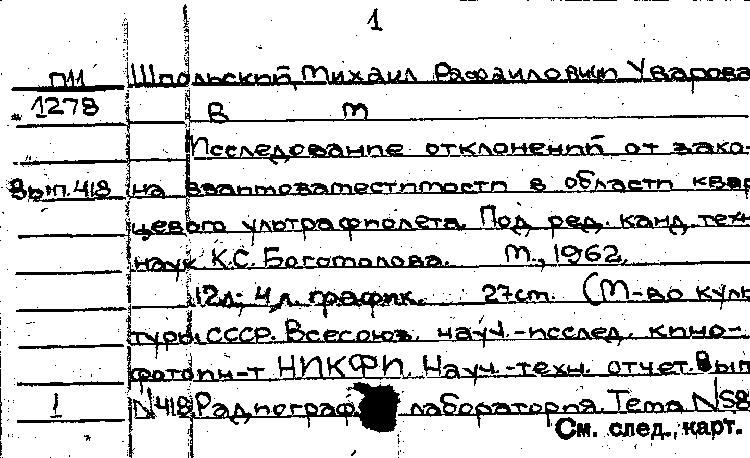 1
П11 Шпольский, Михаил Рафаилович Уварова
1278 В М
Исследование отклонений от зако-
Вып. 418 на взаимозаместимости в области квар
цевого ультрафиолета. Под ред. канд. техн
наук К.С. Богомолова. М., 1962.
12л; 4 л. график. 27см. (М-во куль
туры СССР. Всесоюз. науч.-исслед. кино-
фотоин-т НИКФИ. Науч.-техн. отчет. Вып
1 N418 Радиограф лаборатория. Тема N58
См. след. карт.